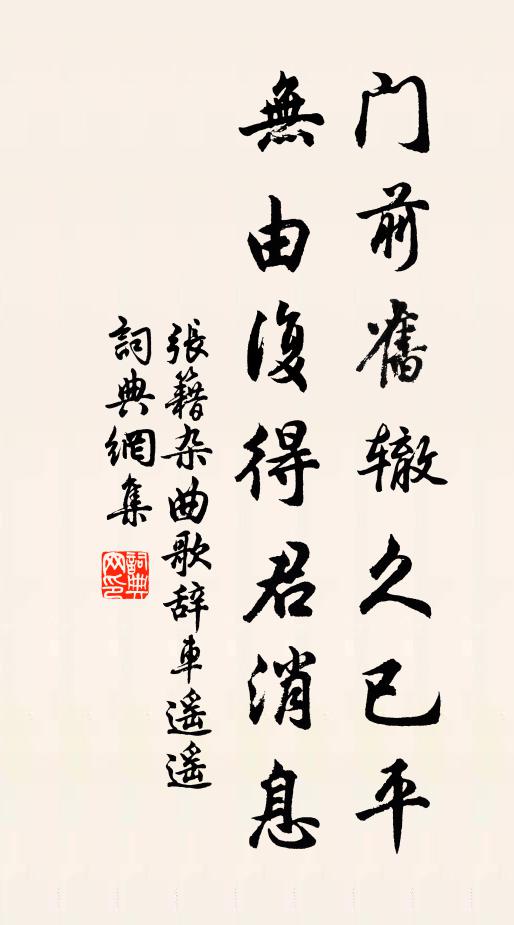 门前舊辙久已平
無由復得君消息
張籍杂曲歌辞車遥遥
詞典網集
詞典网印